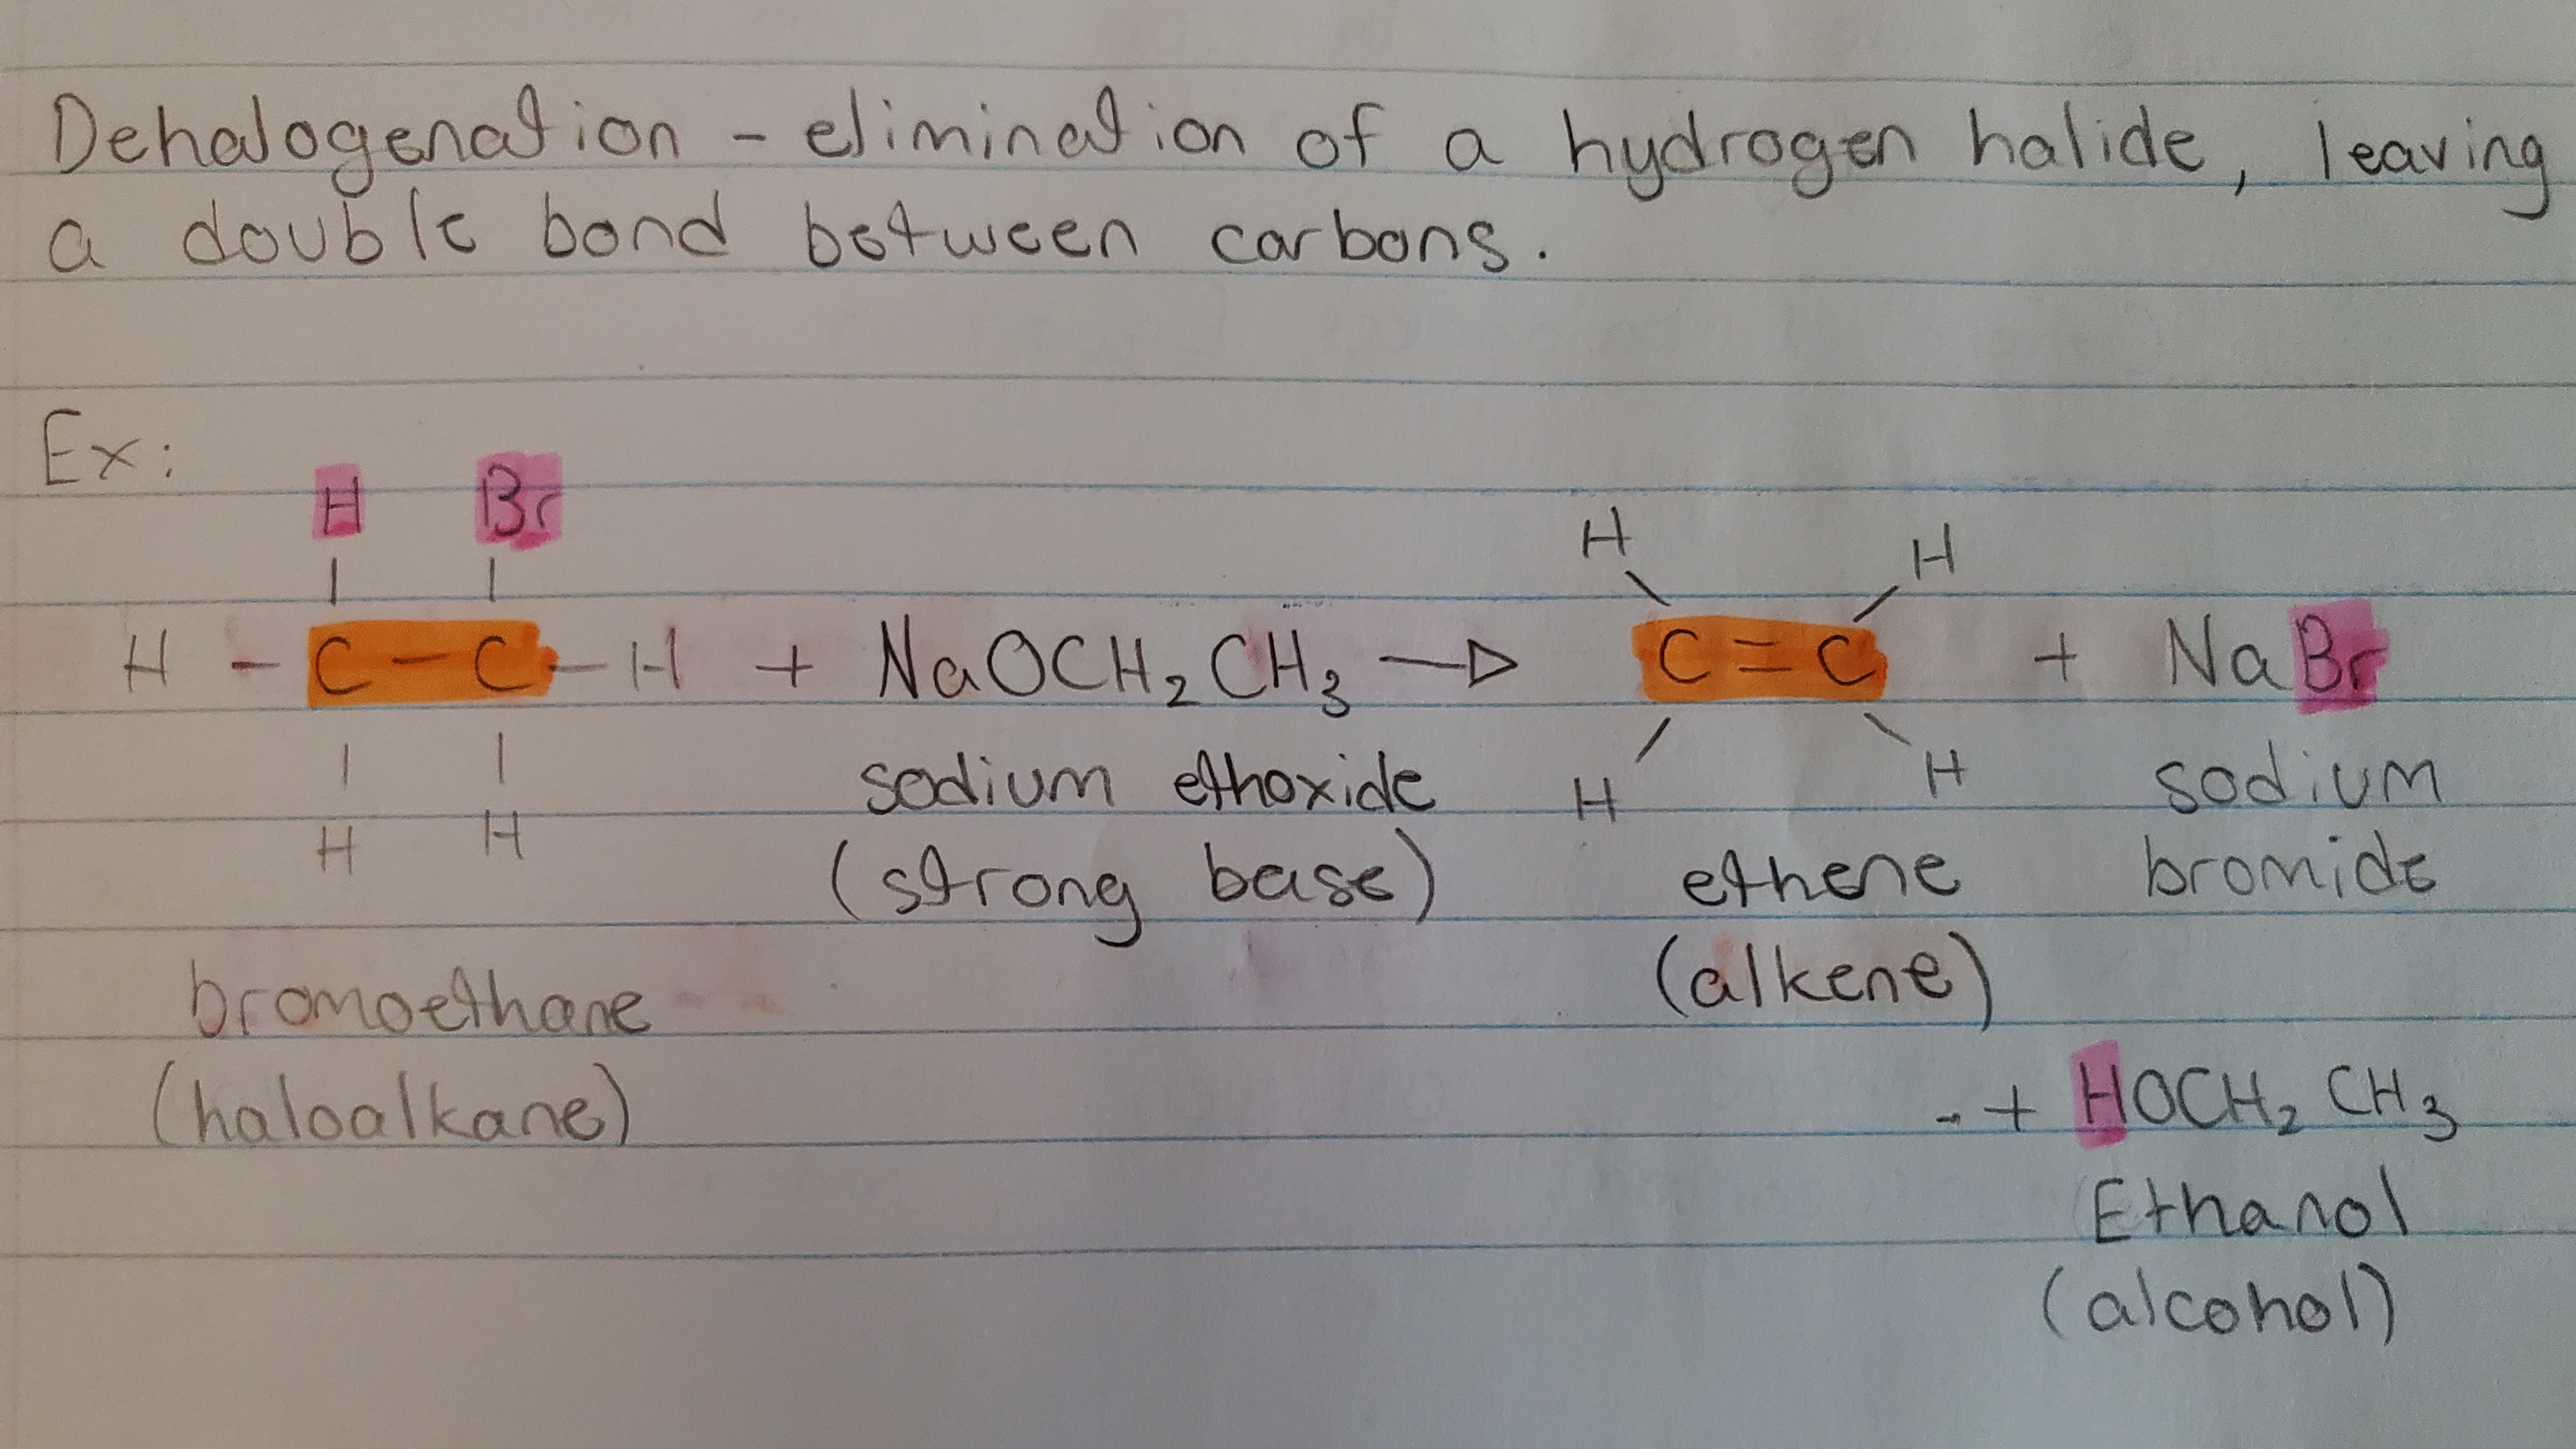 Dehalogenation - elimination of a hydrogen halide, leaving
a double bond between carbons.
Ex:
H Br
H - C - C - H + NaOCH₂CH₃ → C = C + NaBr
H H
H H
H H
sodium ethoxide
(strong base)
ethene
(alkene)
sodium
bromide
bromoethane
(haloalkane)
+ HOCH₂CH₃
Ethanol
(alcohol)